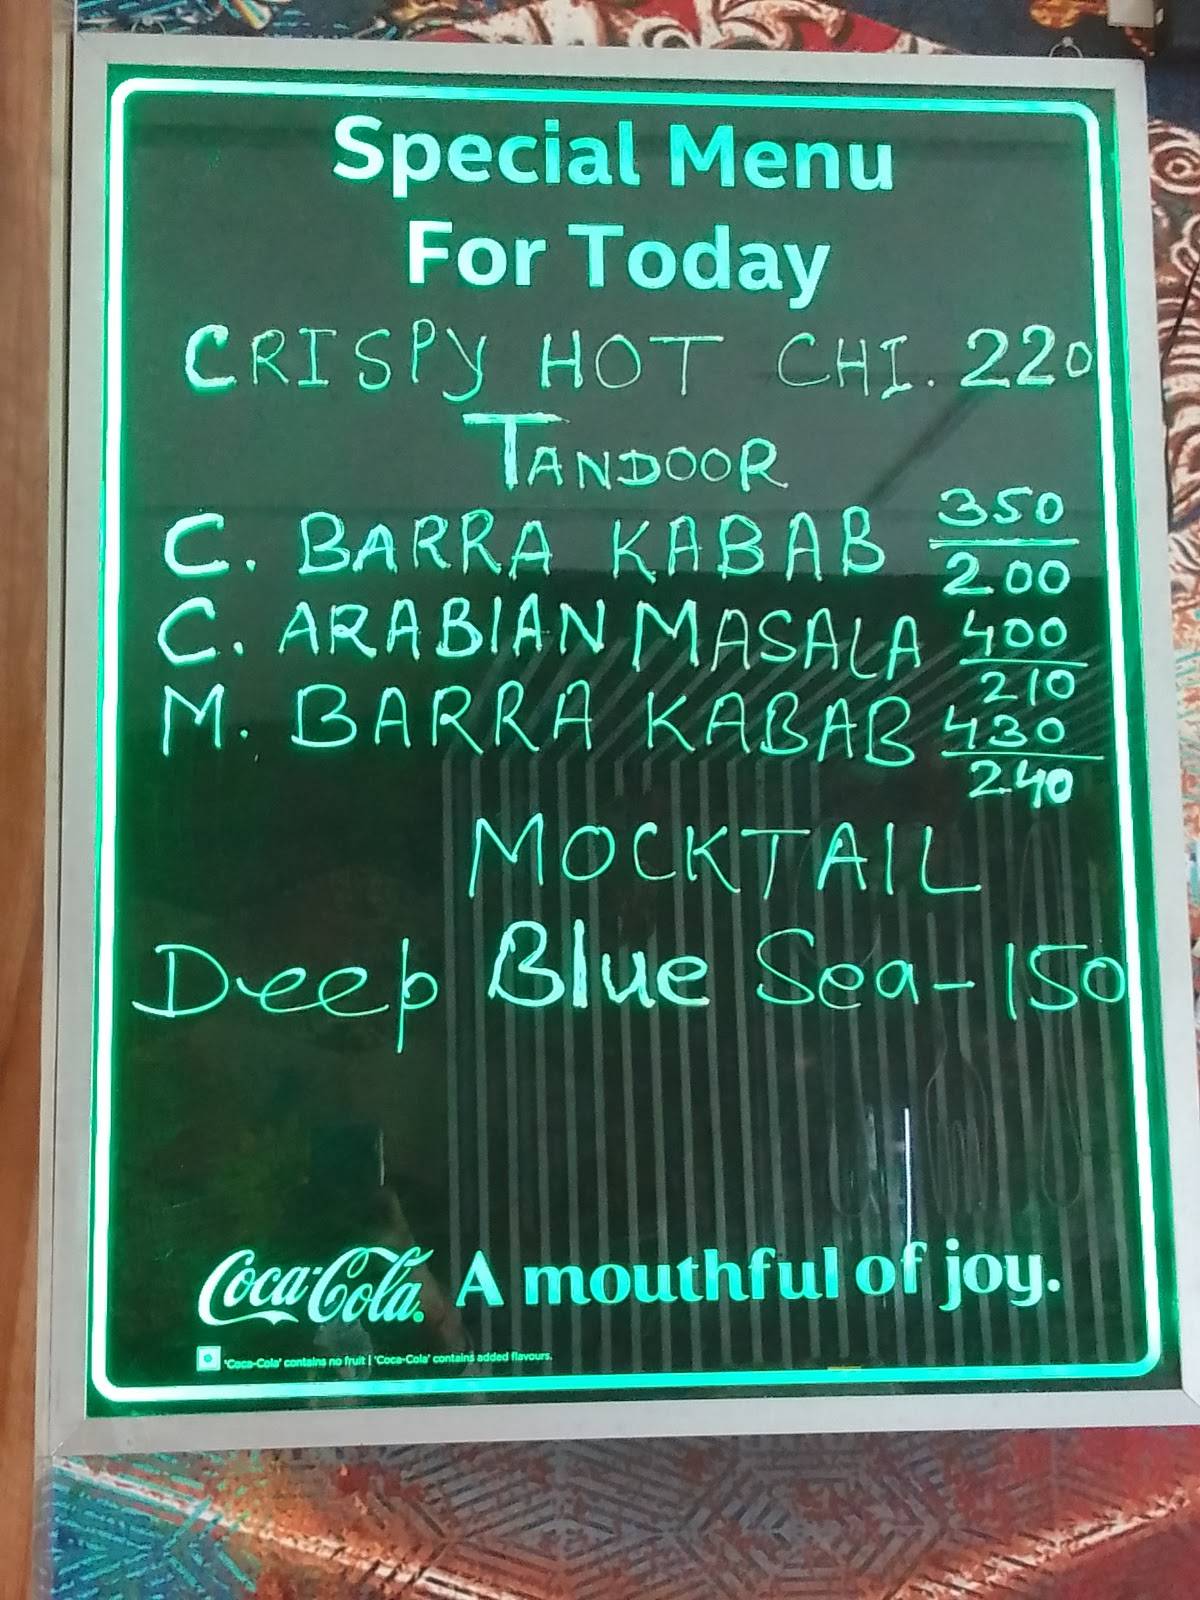 Special Menu
For Today
CRISPY HOT CHI. 220
TANDOOR
C. BARRA KABAB 350/200
C. ARABIAN MASALA 400/210
M. BARRA KABAB 430/240
MOCKTAIL
Deep Blue Sea - 150
Coca-Cola A mouthful of joy.
'Coca-Cola' contains no fruit | 'Coca-Cola' contains added flavours.